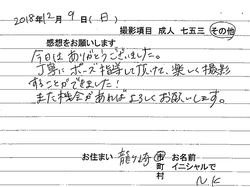 2018年12月9日(日)
撮影項目 成人 七五三 その他
感想をお願いします
今日はありがとうございました。
丁寧にポーズ指導して頂けて、楽しく撮影
することができました!
また機会があればよろしくお願いします。
お住まい 龍ヶ崎 市町村 お名前イニシャルで
N.K